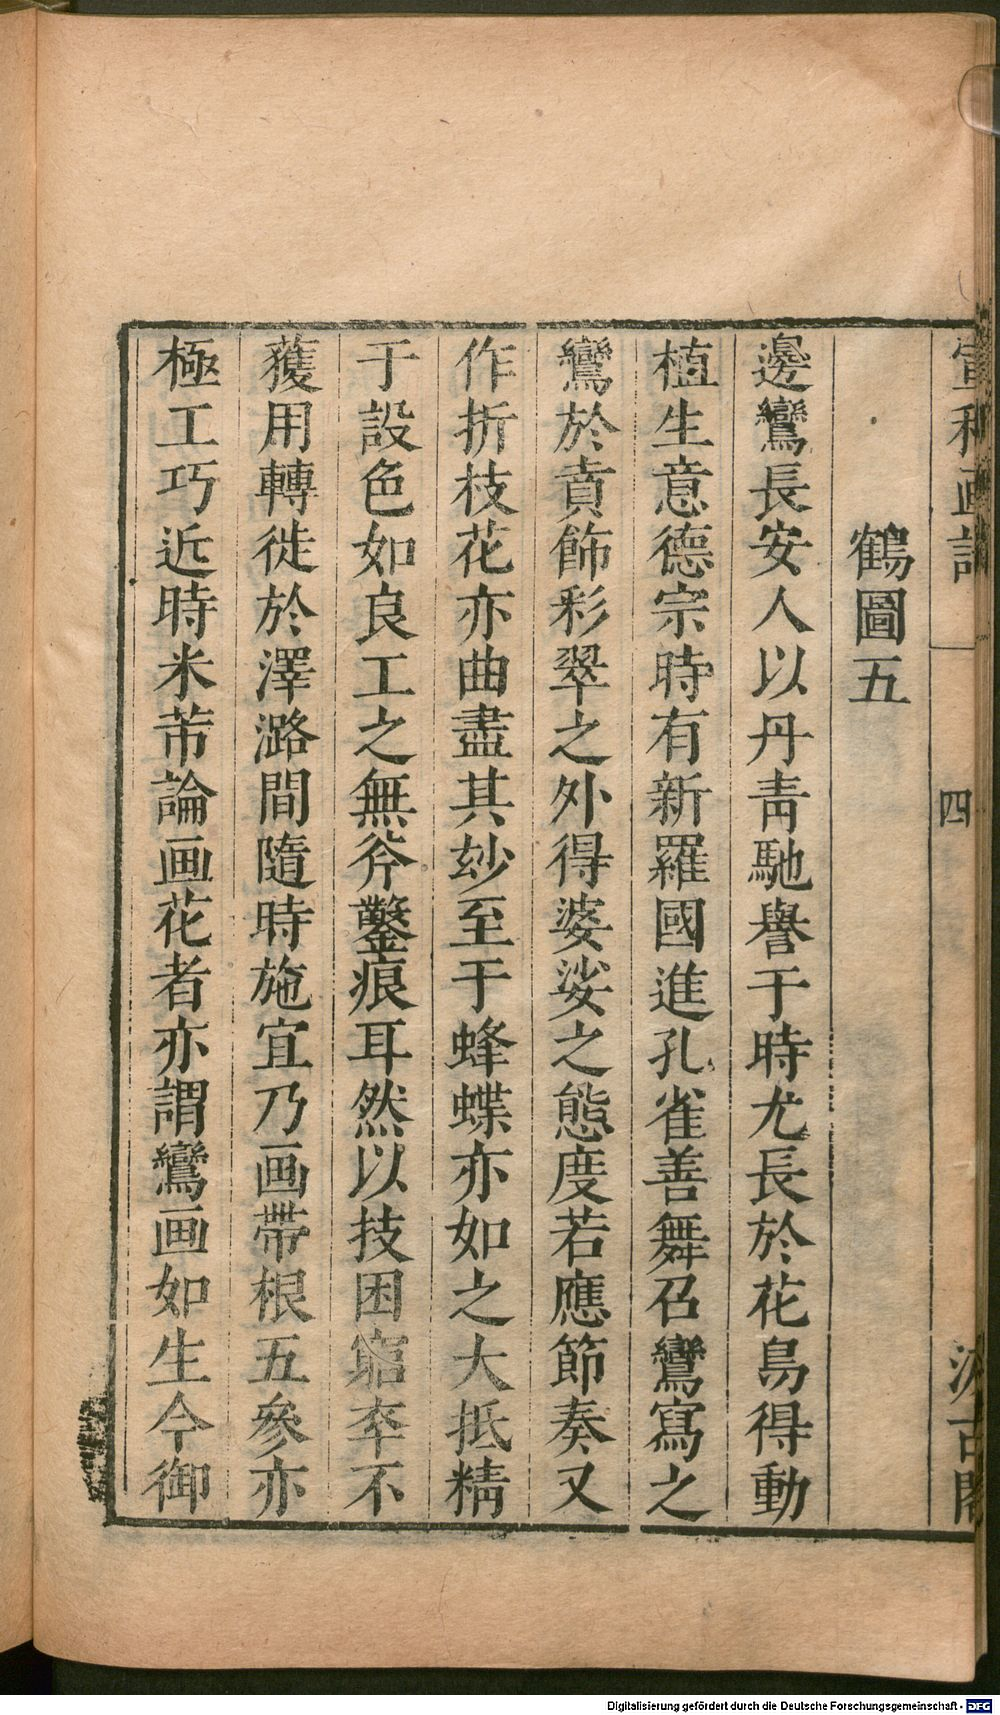 宣和画譜
四
汲古閣
鶴圖五
邊鸞長安人以丹青馳譽于時尤長於花鳥得動
植生意德宗時有新羅國進孔雀善舞召鸞寫之
鸞於賁飾彩翠之外得婆娑之態度若應節奏又
作折枝花亦曲盡其玅至于蜂蝶亦如之大抵精
于設色如良工之無斧鑿痕耳然以技困窮卒不
獲用轉徙於澤潞間隨時施宜乃画帶根五參亦
極工巧近時米芾論画花者亦謂鸞画如生今御
Digitalisierung gefördert durch die Deutsche Forschungsgemeinschaft - DFG